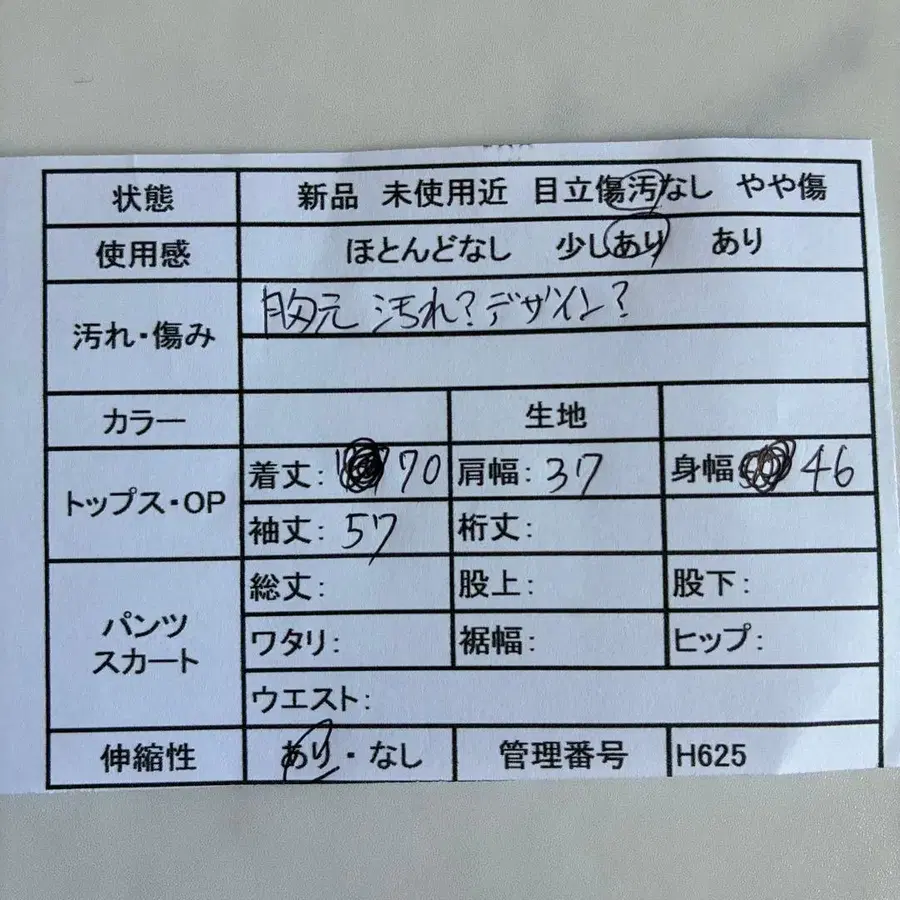 状態 新品 未使用近 目立傷汚なし やや傷
使用感 ほとんどなし 少しあり あり
汚れ・傷み 胸元 汚れ?デザイン?
カラー 生地
トップス・OP 着丈: 70 肩幅: 37 身幅 46
袖丈: 57 裄丈:
パンツ
スカート
総丈: 股上: 股下:
ワタリ: 裾幅: ヒップ:
ウエスト:
伸縮性 あり・なし 管理番号 H625